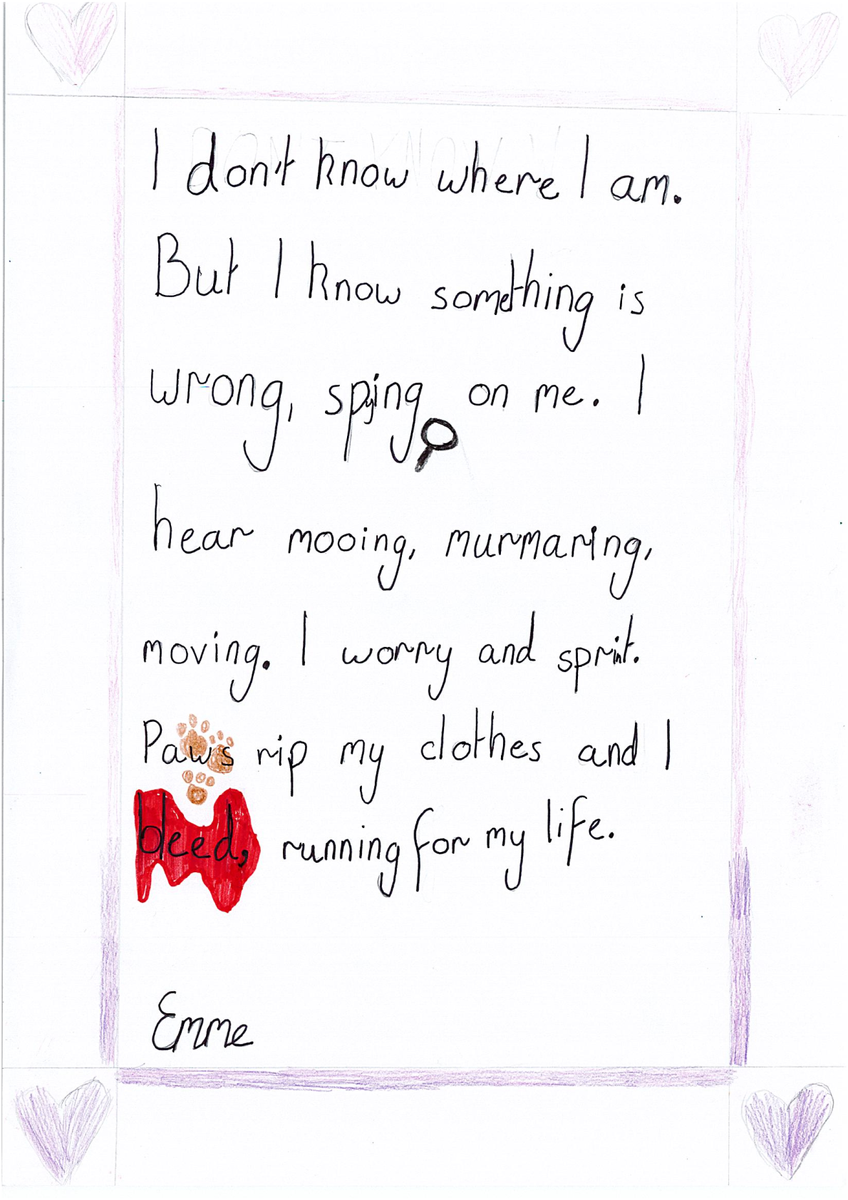 I don't know where I am.
But I know something is
wrong, spying on me. I
hear mooing, murmaring,
moving. I worry and sprint.
Paws rip my clothes and I
bleed, running for my life.
Emme